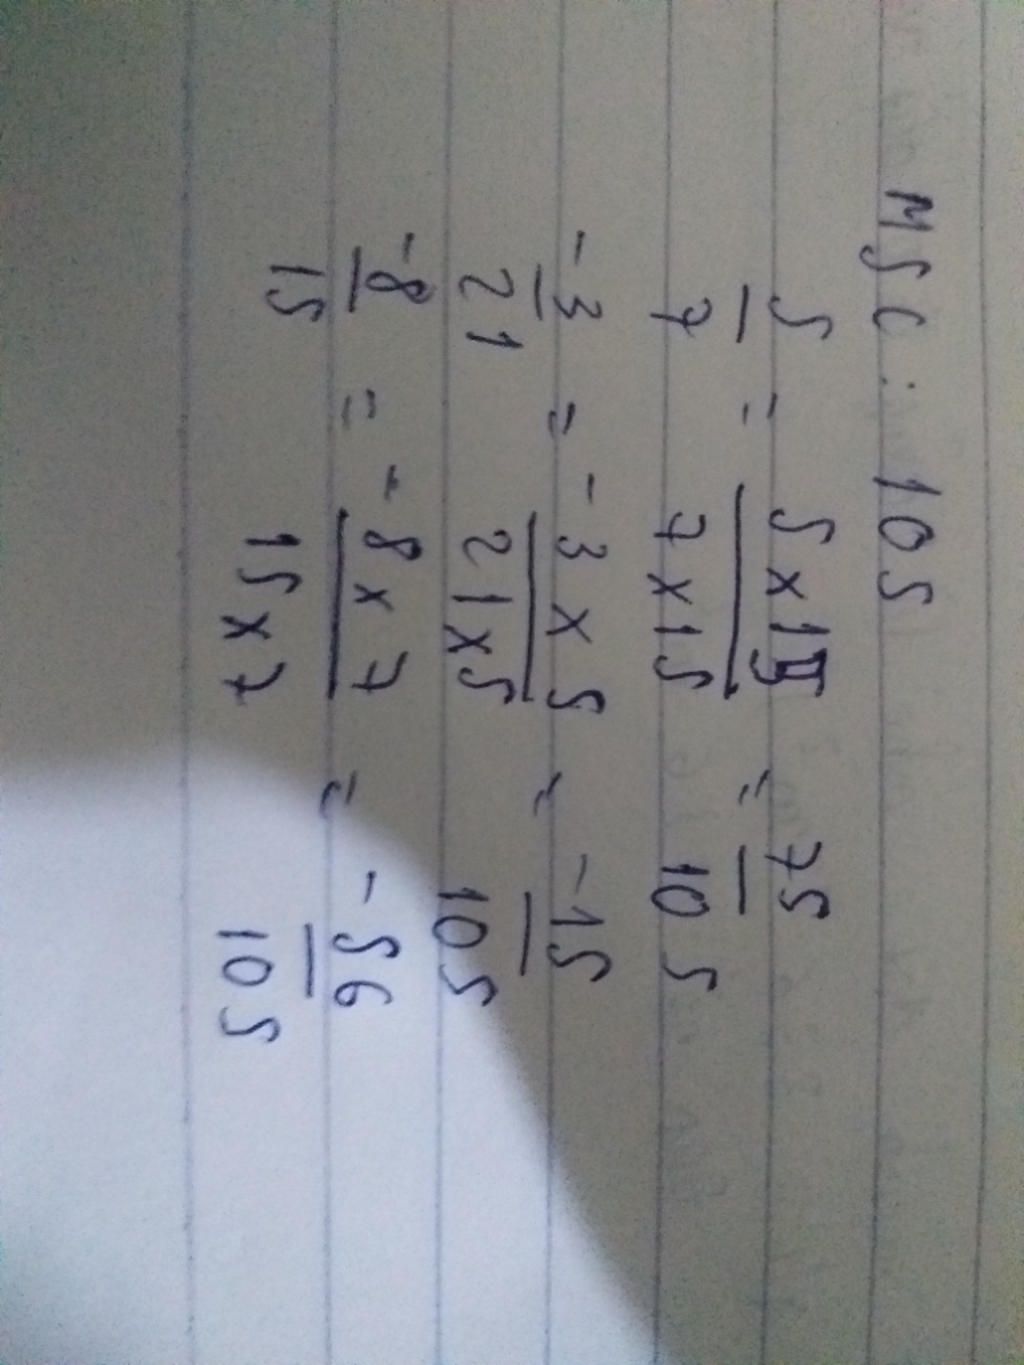 MSC: 105
5/7 = 5x15/7x15 = 75/105
-3/21 = -3x5/21x5 = -15/105
-8/15 = -8x7/15x7 = -56/105